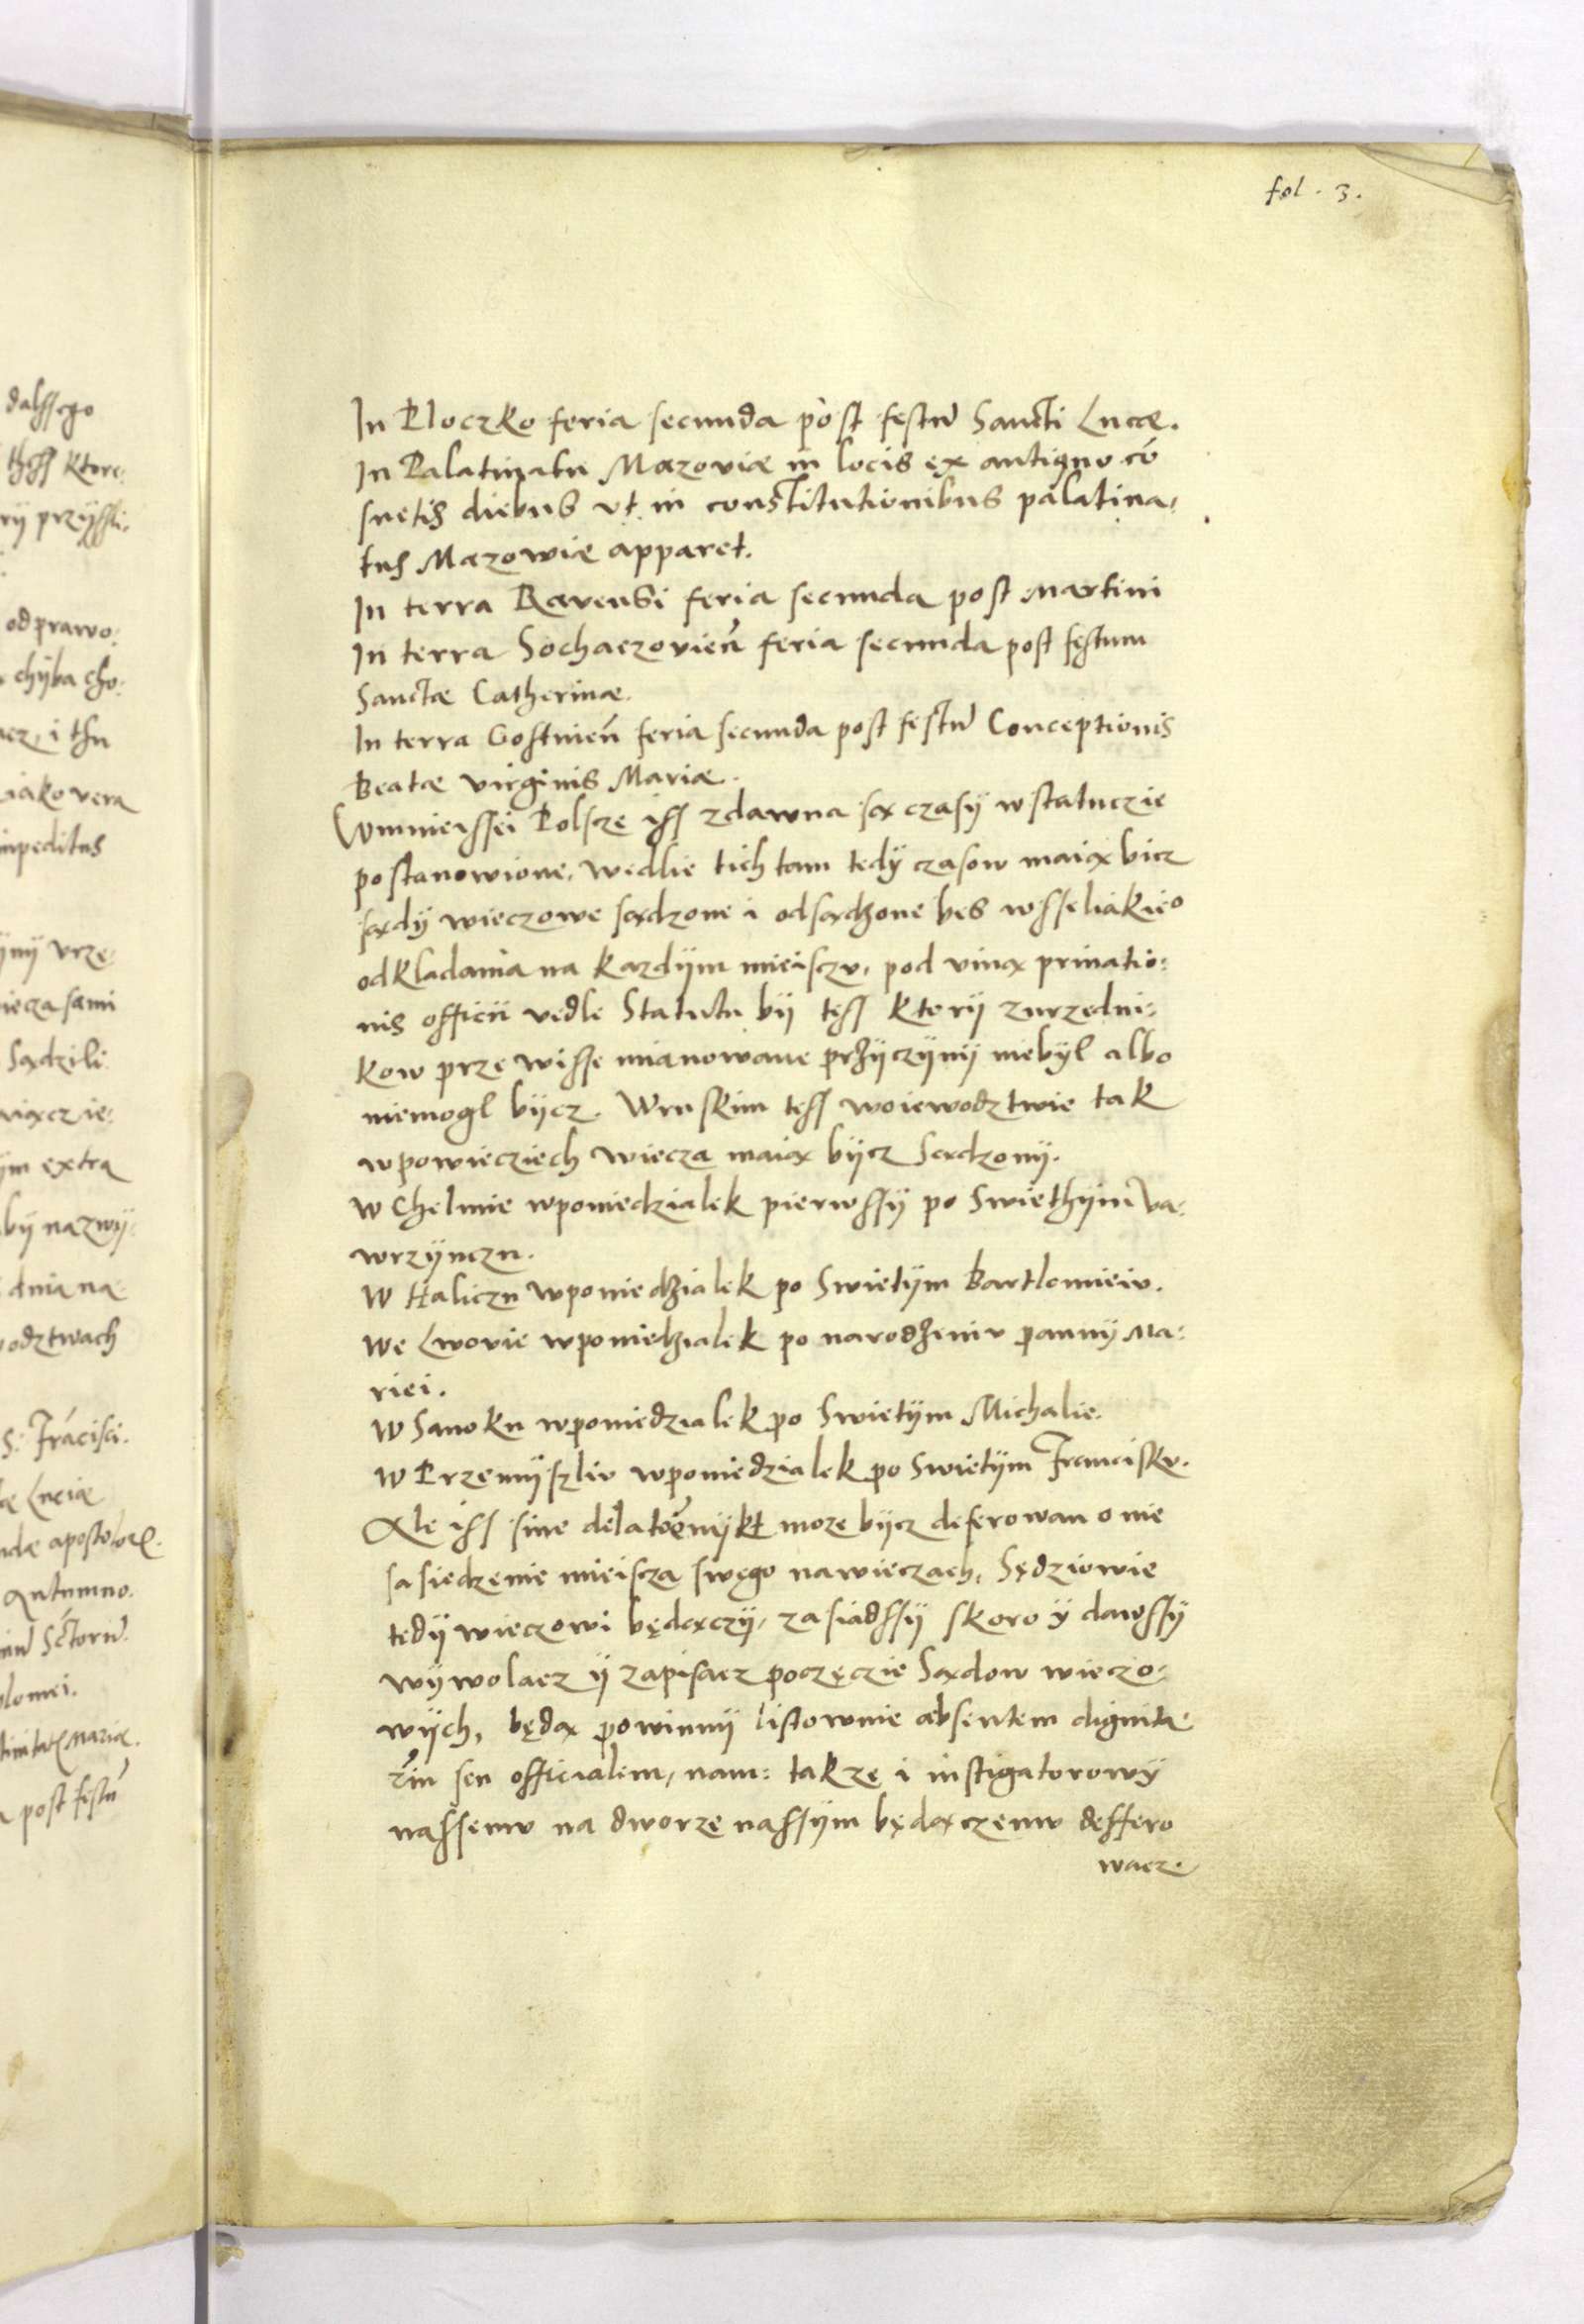 dalssego
thess ktore:
rÿ przÿssli:
odprawo:
chÿba cho:
acz, i thu
iako vera
impeditus
ÿnÿ vrzę
wiecza sami
Sądzili
wiączie:
ÿm extra
bÿ nazwÿ:
dnia na
wodztwach
S. Frācisci.
æ Luciæ
dæ apostolor.
Autumno.
Sctorū.
olomei.
Mariæ.
post festū
fol. 3.
In Ploczko feria secunda post festū Sancti Lucæ.
In Palatinatu Mazoviæ in locis ex antiquo cō
suetis diebus vt in constitutionibus palatina,
tus Mazowiæ apparet.
In terra Ravensi feria secunda post Martini
In terra Sochaczovien̄ feria secunda post festum
Sanctæ Catherinæ.
In terra Gostinien̄ feria secunda post festū Conceptionis
Beatæ virginis Mariæ.
Wmnieissei Polscze iss zdawna są czasÿ wstatuczie
postanowione, wedlie tich tam tedÿ czasow maią bicz
sądÿ wieczowe sądzone i odsądzone bes wsseliakieo
odkladania na kazdÿm mieisczv, pod viną priuatio:
nis officii vedle Statutu bÿ tess kterÿ zurzedni:
kow prze wisse mianowane przÿczÿnÿ niebÿl albo
niemogl bÿcz. Wruskim tess woiewodztwie tak
wpowiecziech wiecza maią bÿcz Sądzonÿ.
W Chelmie wponiedzialek pierwssÿ po Swiethÿm Va:
wrzÿnczu.
W Haliczu wponiedzialek po Swietÿm Bartlomieiv.
We Lwovie wponiedzialek po narodzeniv pannÿ Ma:
riei.
W Sanoku wponiedzialek po Swietÿm Michalie.
W Przemÿszliv wponiedzialek po Swietÿm Franciskv.
Ale iss sine delatore nikt może bÿcz deferowan o nie
sasiedzenie mieiscza swęgo nawieczach, Sędziowie
tedÿ wieczowi będączÿ, zasiadssÿ skoro ÿ dawssÿ
wÿwolacz ÿ zapisacz poczęczie Sądow wieczo:
wÿch, będą powinnÿ listownie absentem dignita
riū seu officialem, nam: takzę i instigatorowÿ
nassemv na dworze nassÿm będączemv deffero
wacz.